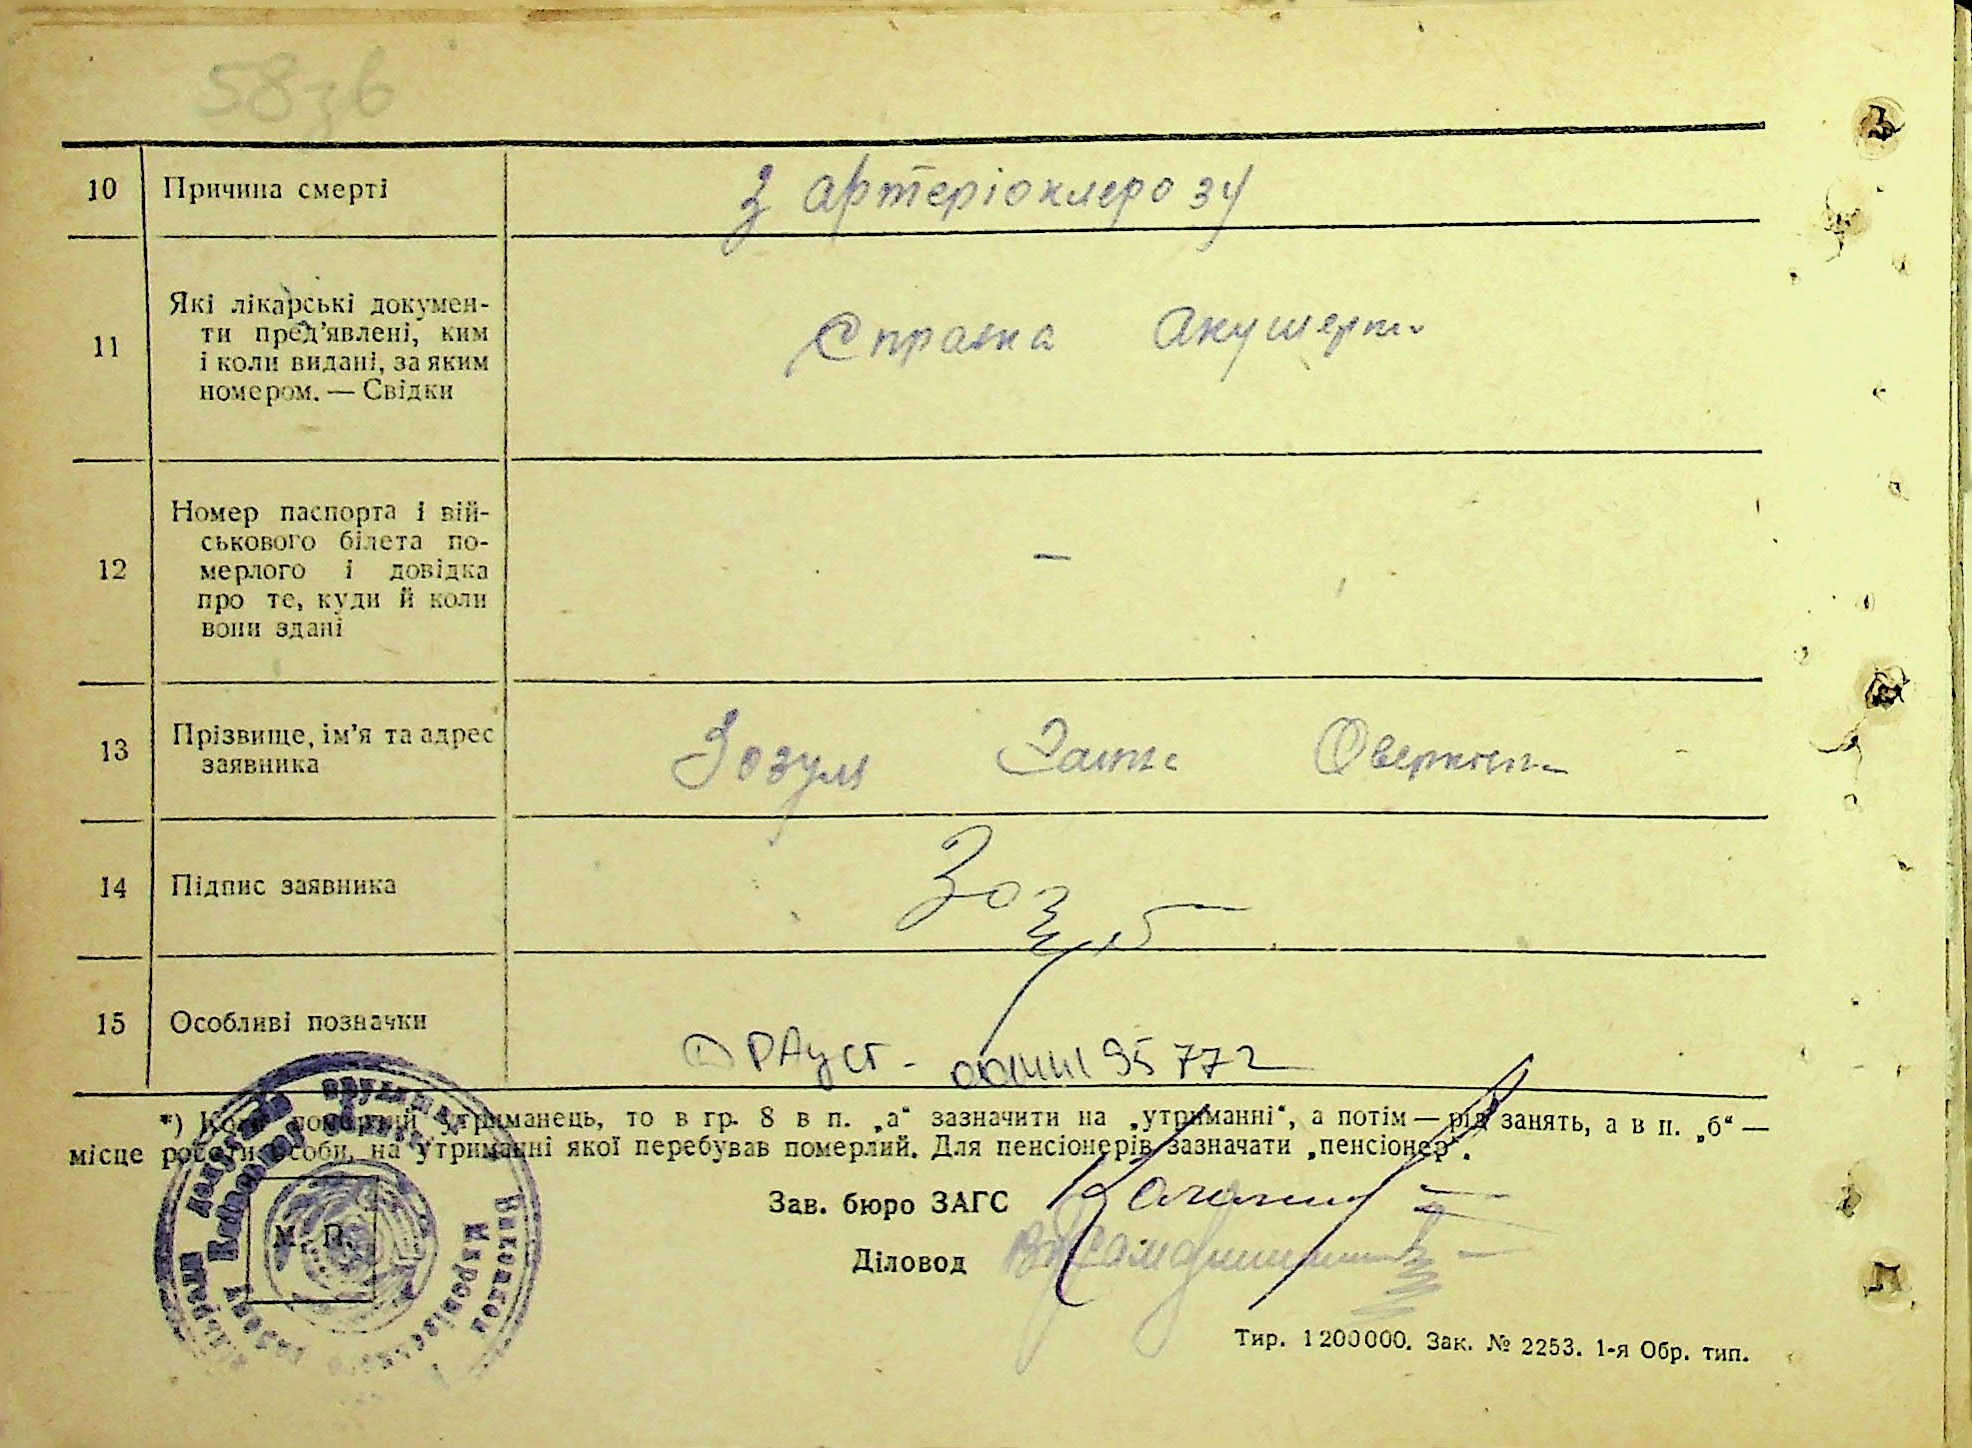 58зв
10 Причина смерті З артеріоклерозу
11 Які лікарські докумен-
ти пред'явлені, ким
і коли видані, за яким
номером. — Свідки
Справка Акушерки
12 Номер паспорта і вій-
ськового білета по-
мерлого і довідка
про те, куди й коли
вони здані
—
13 Прізвище, ім'я та адрес
заявника
Зозуля
14 Підпис заявника
15 Особливі позначки
*) Коли померлий утриманець, то в гр. 8 в п. „а“ зазначити на „утриманні“, а потім — рід занять, а в п. „б“ —
місце роботи особи, на утриманні якої перебував померлий. Для пенсіонерів зазначати „пенсіонер“.
М. П.
Зав. бюро ЗАГС
Діловод
Тир. 1200000. Зак. № 2253. 1-я Обр. тип.